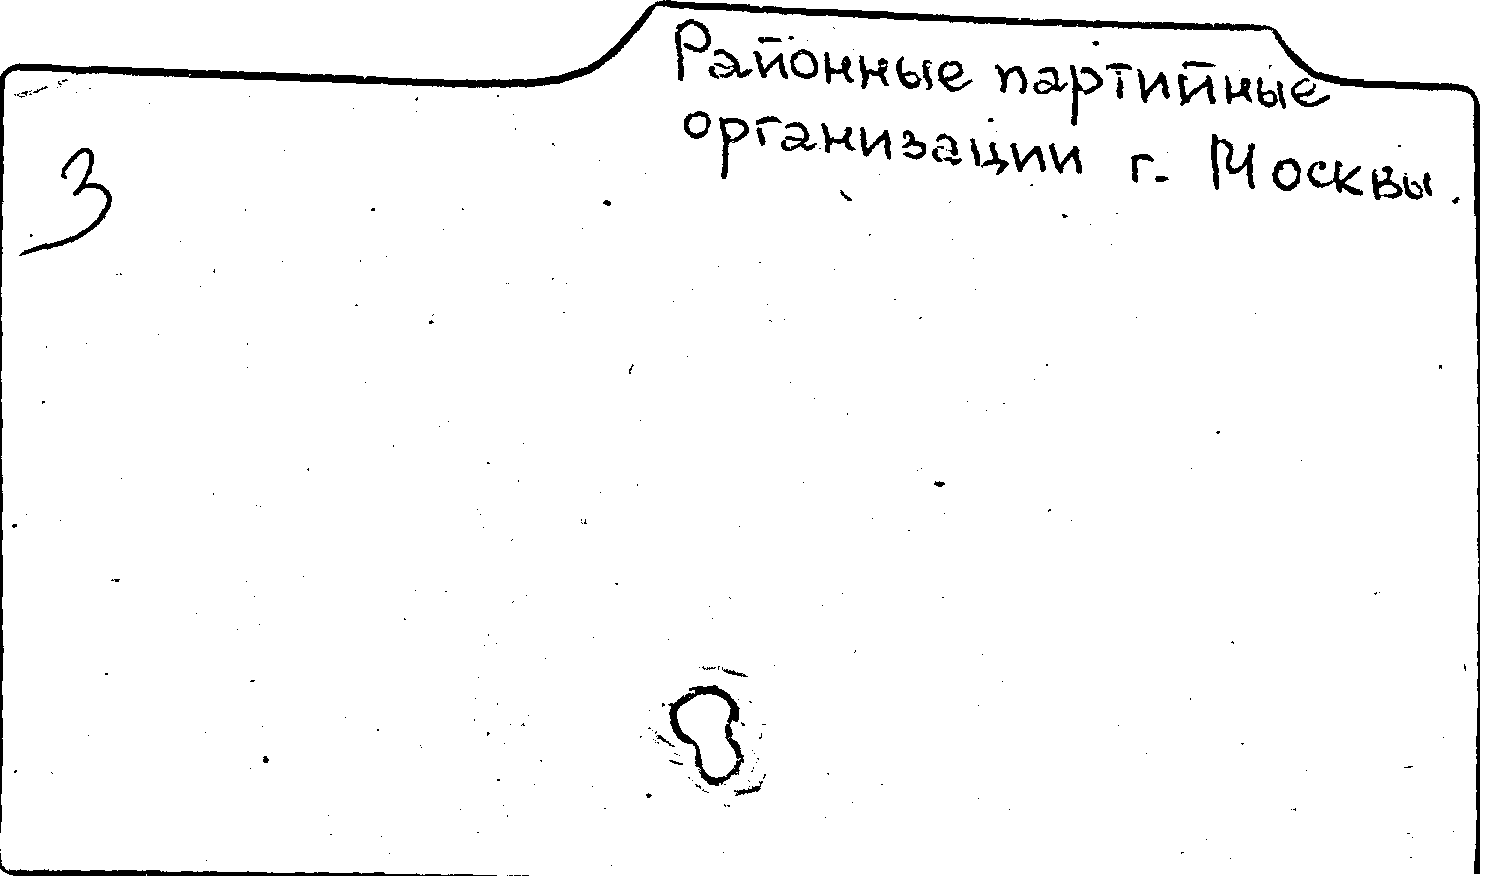 Районные партийные
организации г. Москвы.
3